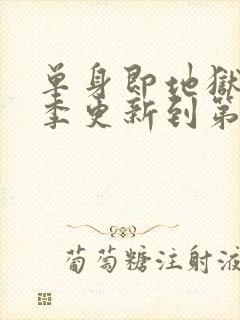 单身即地狱
季更新到第
葡萄糖注射液